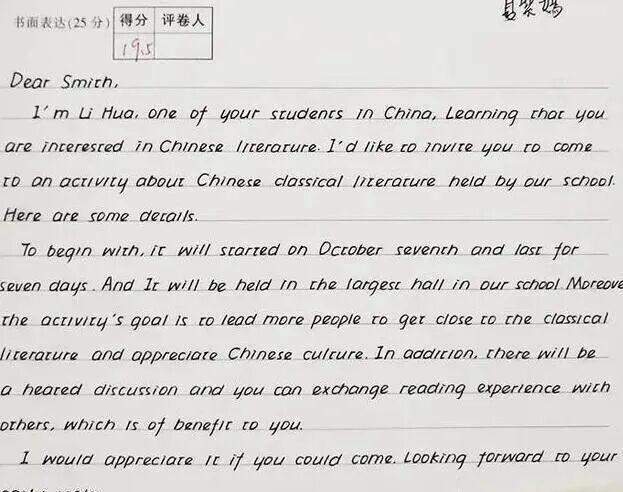 书面表达(25分)
得分 评卷人
19.5
Dear Smith,
I'm Li Hua, one of your students in China, Learning that you
are interested in Chinese literature. I'd like to invite you to come
to an activity about Chinese classical literature held by our school.
Here are some details.
To begin with, it will started on October seventh and last for
seven days. And It will be held in the largest hall in our school Moreove
the activity's goal is to lead more people to get close to the classical
literature and appreciate Chinese culture. In addition, there will be
a heated discussion and you can exchange reading experience with
others, which is of benefit to you.
I would appreciate it if you could come. Looking forward to your